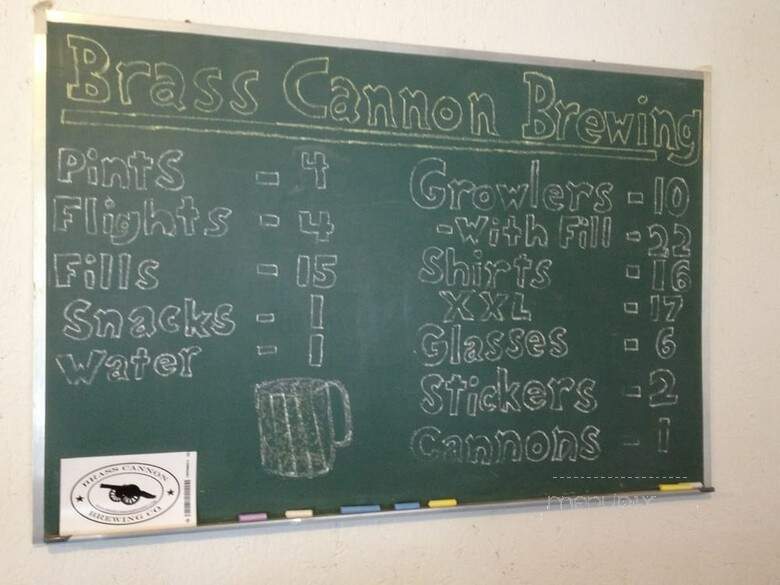 Brass Cannon Brewing
Pints - 4
Flights - 4
Fills - 15
Snacks - 1
Water - 1
Growlers - 10
- With Fill - 22
Shirts - 16
XXL - 17
Glasses - 6
Stickers - 2
Cannons - 1
BRASS CANNON
BREWING CO
menupix